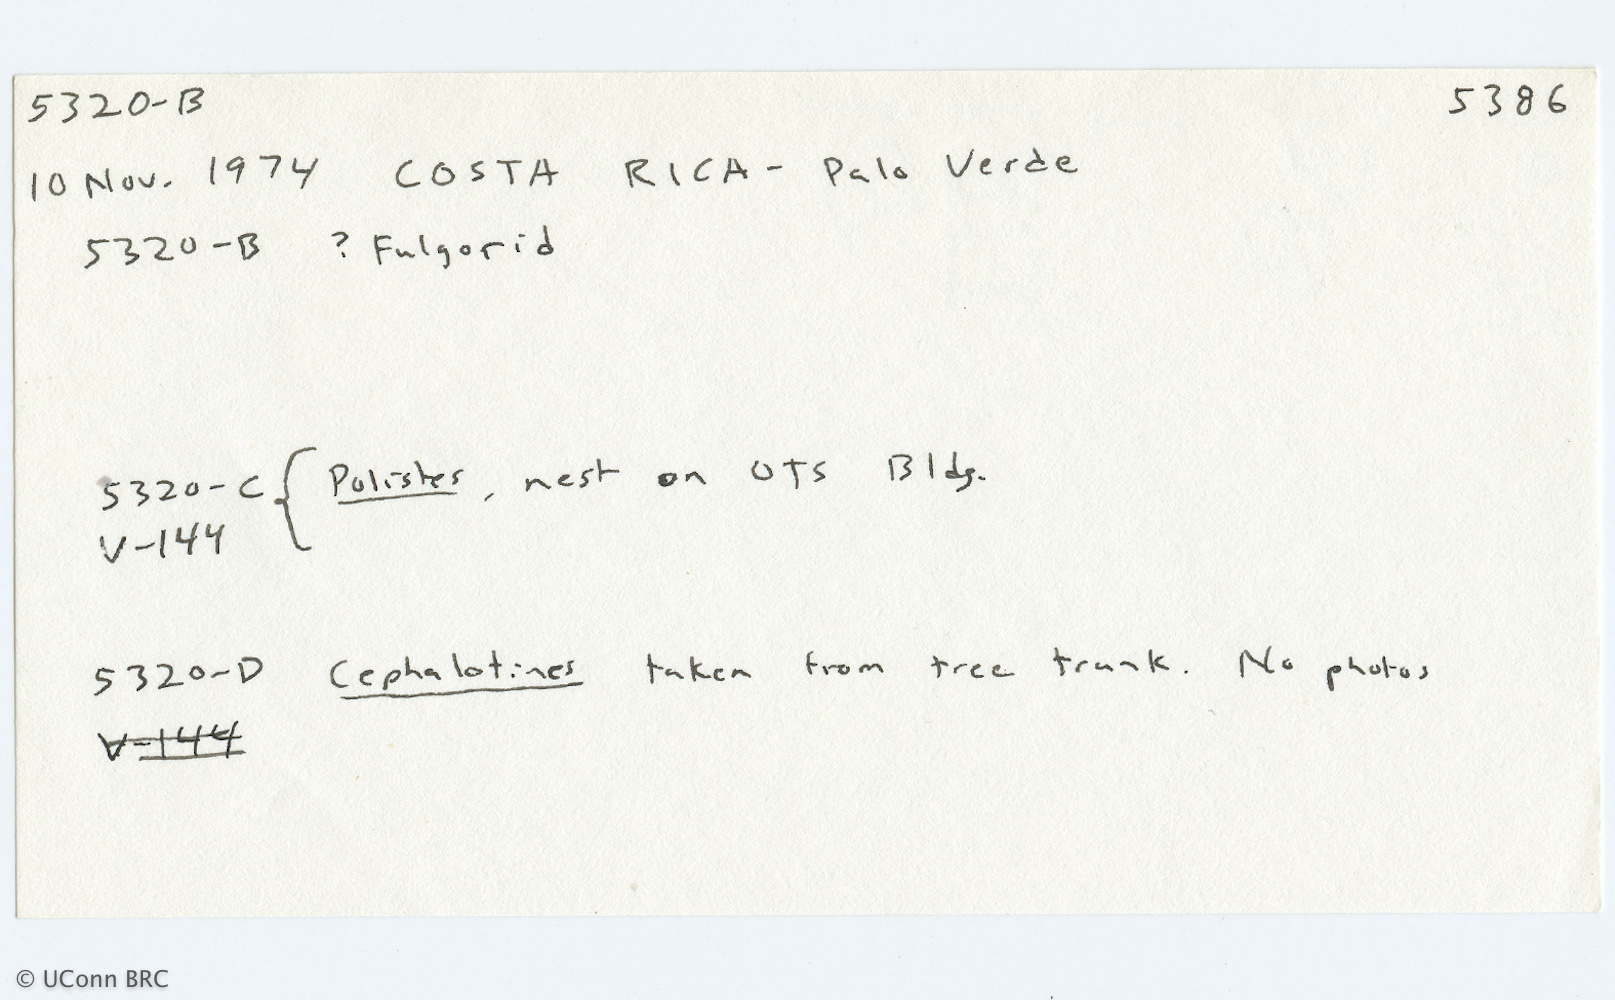 5320-B 5386
10 Nov. 1974 COSTA RICA - Palo Verde
5320-B ? Fulgorid
5320-C { Polistes, nest on OTS Bldg.
V-144
5320-D Cephalotines taken from tree trunk. No photos
V-144
© UConn BRC